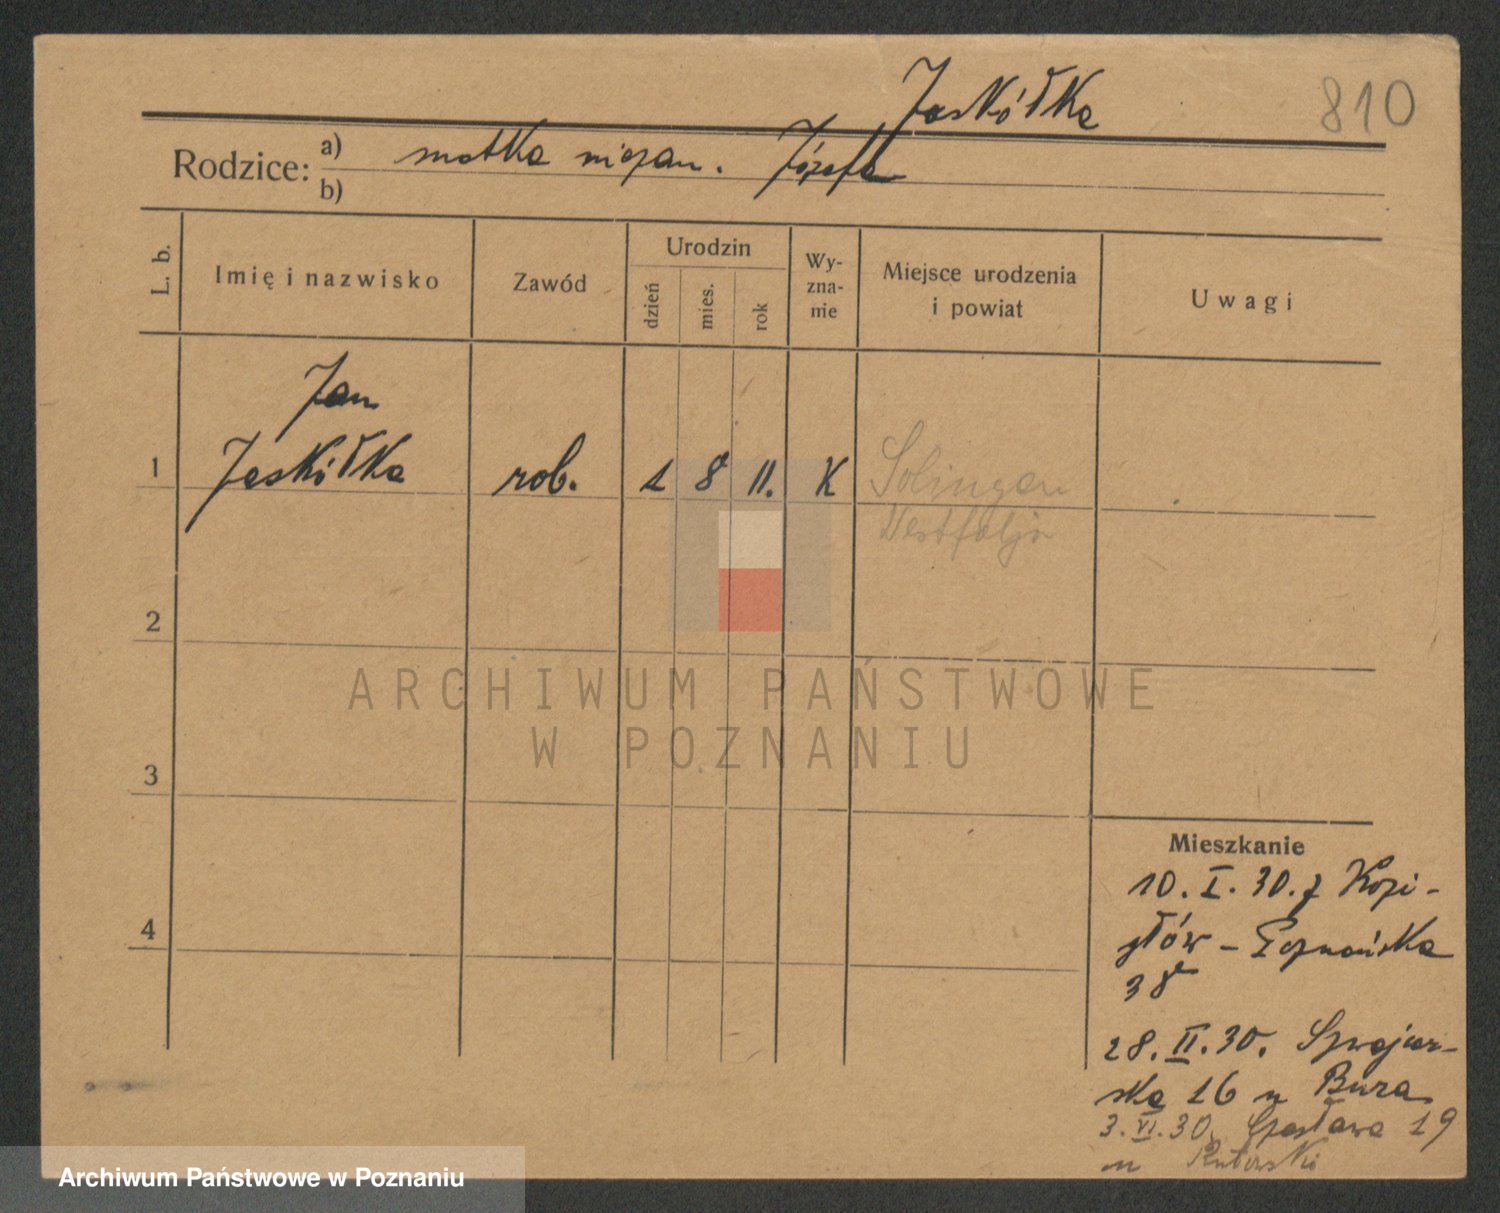 Jaskółka
810
Rodzice: a) matka niezam. Józefa
b)
L. b.
Imię i nazwisko
Zawód
Urodzin
dzień
mies.
rok
Wy-
zna-
nie
Miejsce urodzenia
i powiat
Uwagi
Jan
1 Jaskółka rob. 1 8 11. K Solingen
Westfalja
2
ARCHIWUM PAŃSTWOWE
W POZNANIU
3
Mieszkanie
10. I. 30. z
4
Poznańska
38
28. II. 30. Szwajcar-
ska 16 u Bura
3. VI. 30. 19
u
Archiwum Państwowe w Poznaniu